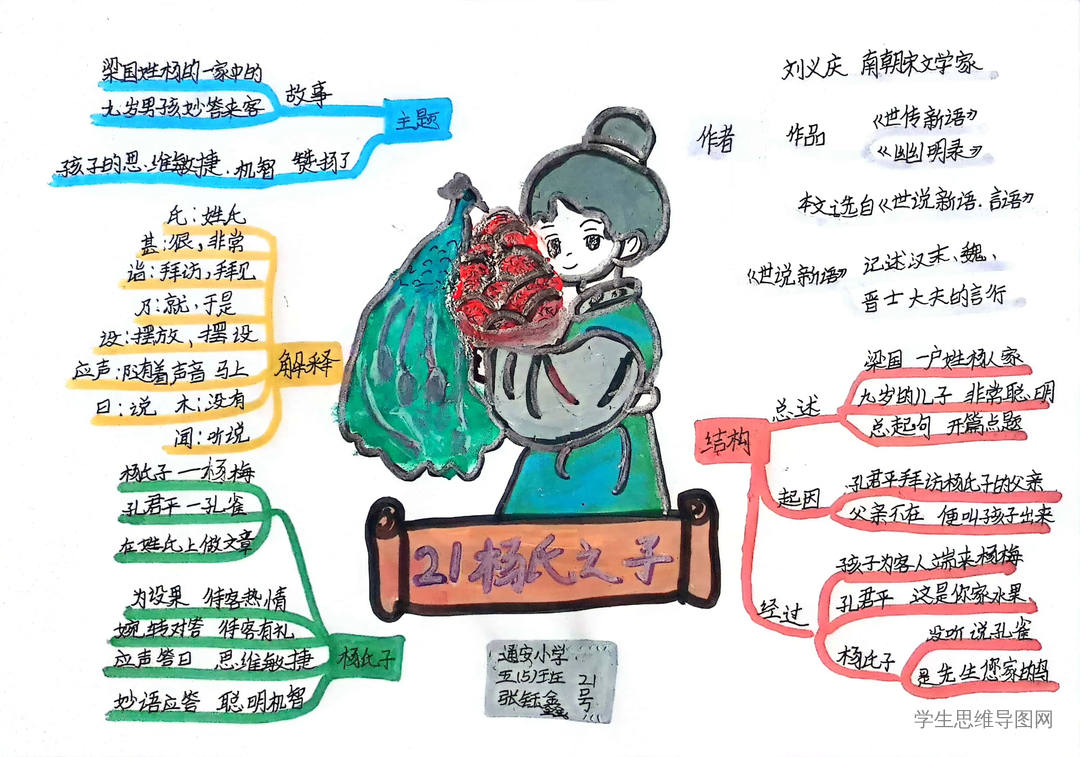 梁国姓杨的一家中的
九岁男孩妙答来客
故事
主题
孩子的思维敏捷、机智 赞扬了
氏:姓氏
甚:很,非常
诣:拜访,拜见
乃:就,于是
设:摆放、摆设
应声:随着声音 马上
曰:说 未:没有
闻:听说
解释
杨氏子一杨梅
孔君平一孔雀
在姓氏上做文章
为设果 待客热情
婉转对答 待客有礼
应声答曰 思维敏捷
妙语应答 聪明机智
杨氏子
21杨氏之子
通安小学
五(5)班 21
号
刘义庆 南朝宋文学家
作者 作品
《世传新语》
《幽明录》
本文选自《世说新语·言语》
《世说新语》
记述汉末、魏、
晋士大夫的言行
结构
总述
梁国 一户姓杨人家
九岁的儿子 非常聪明
总起句 开篇点题
起因
孔君平拜访杨氏子的父亲
父亲不在 便叫孩子出来
经过
孩子为客人端来杨梅
孔君平 这是你家水果
杨氏子
没听说孔雀
是先生您家的鸟
学生思维导图网